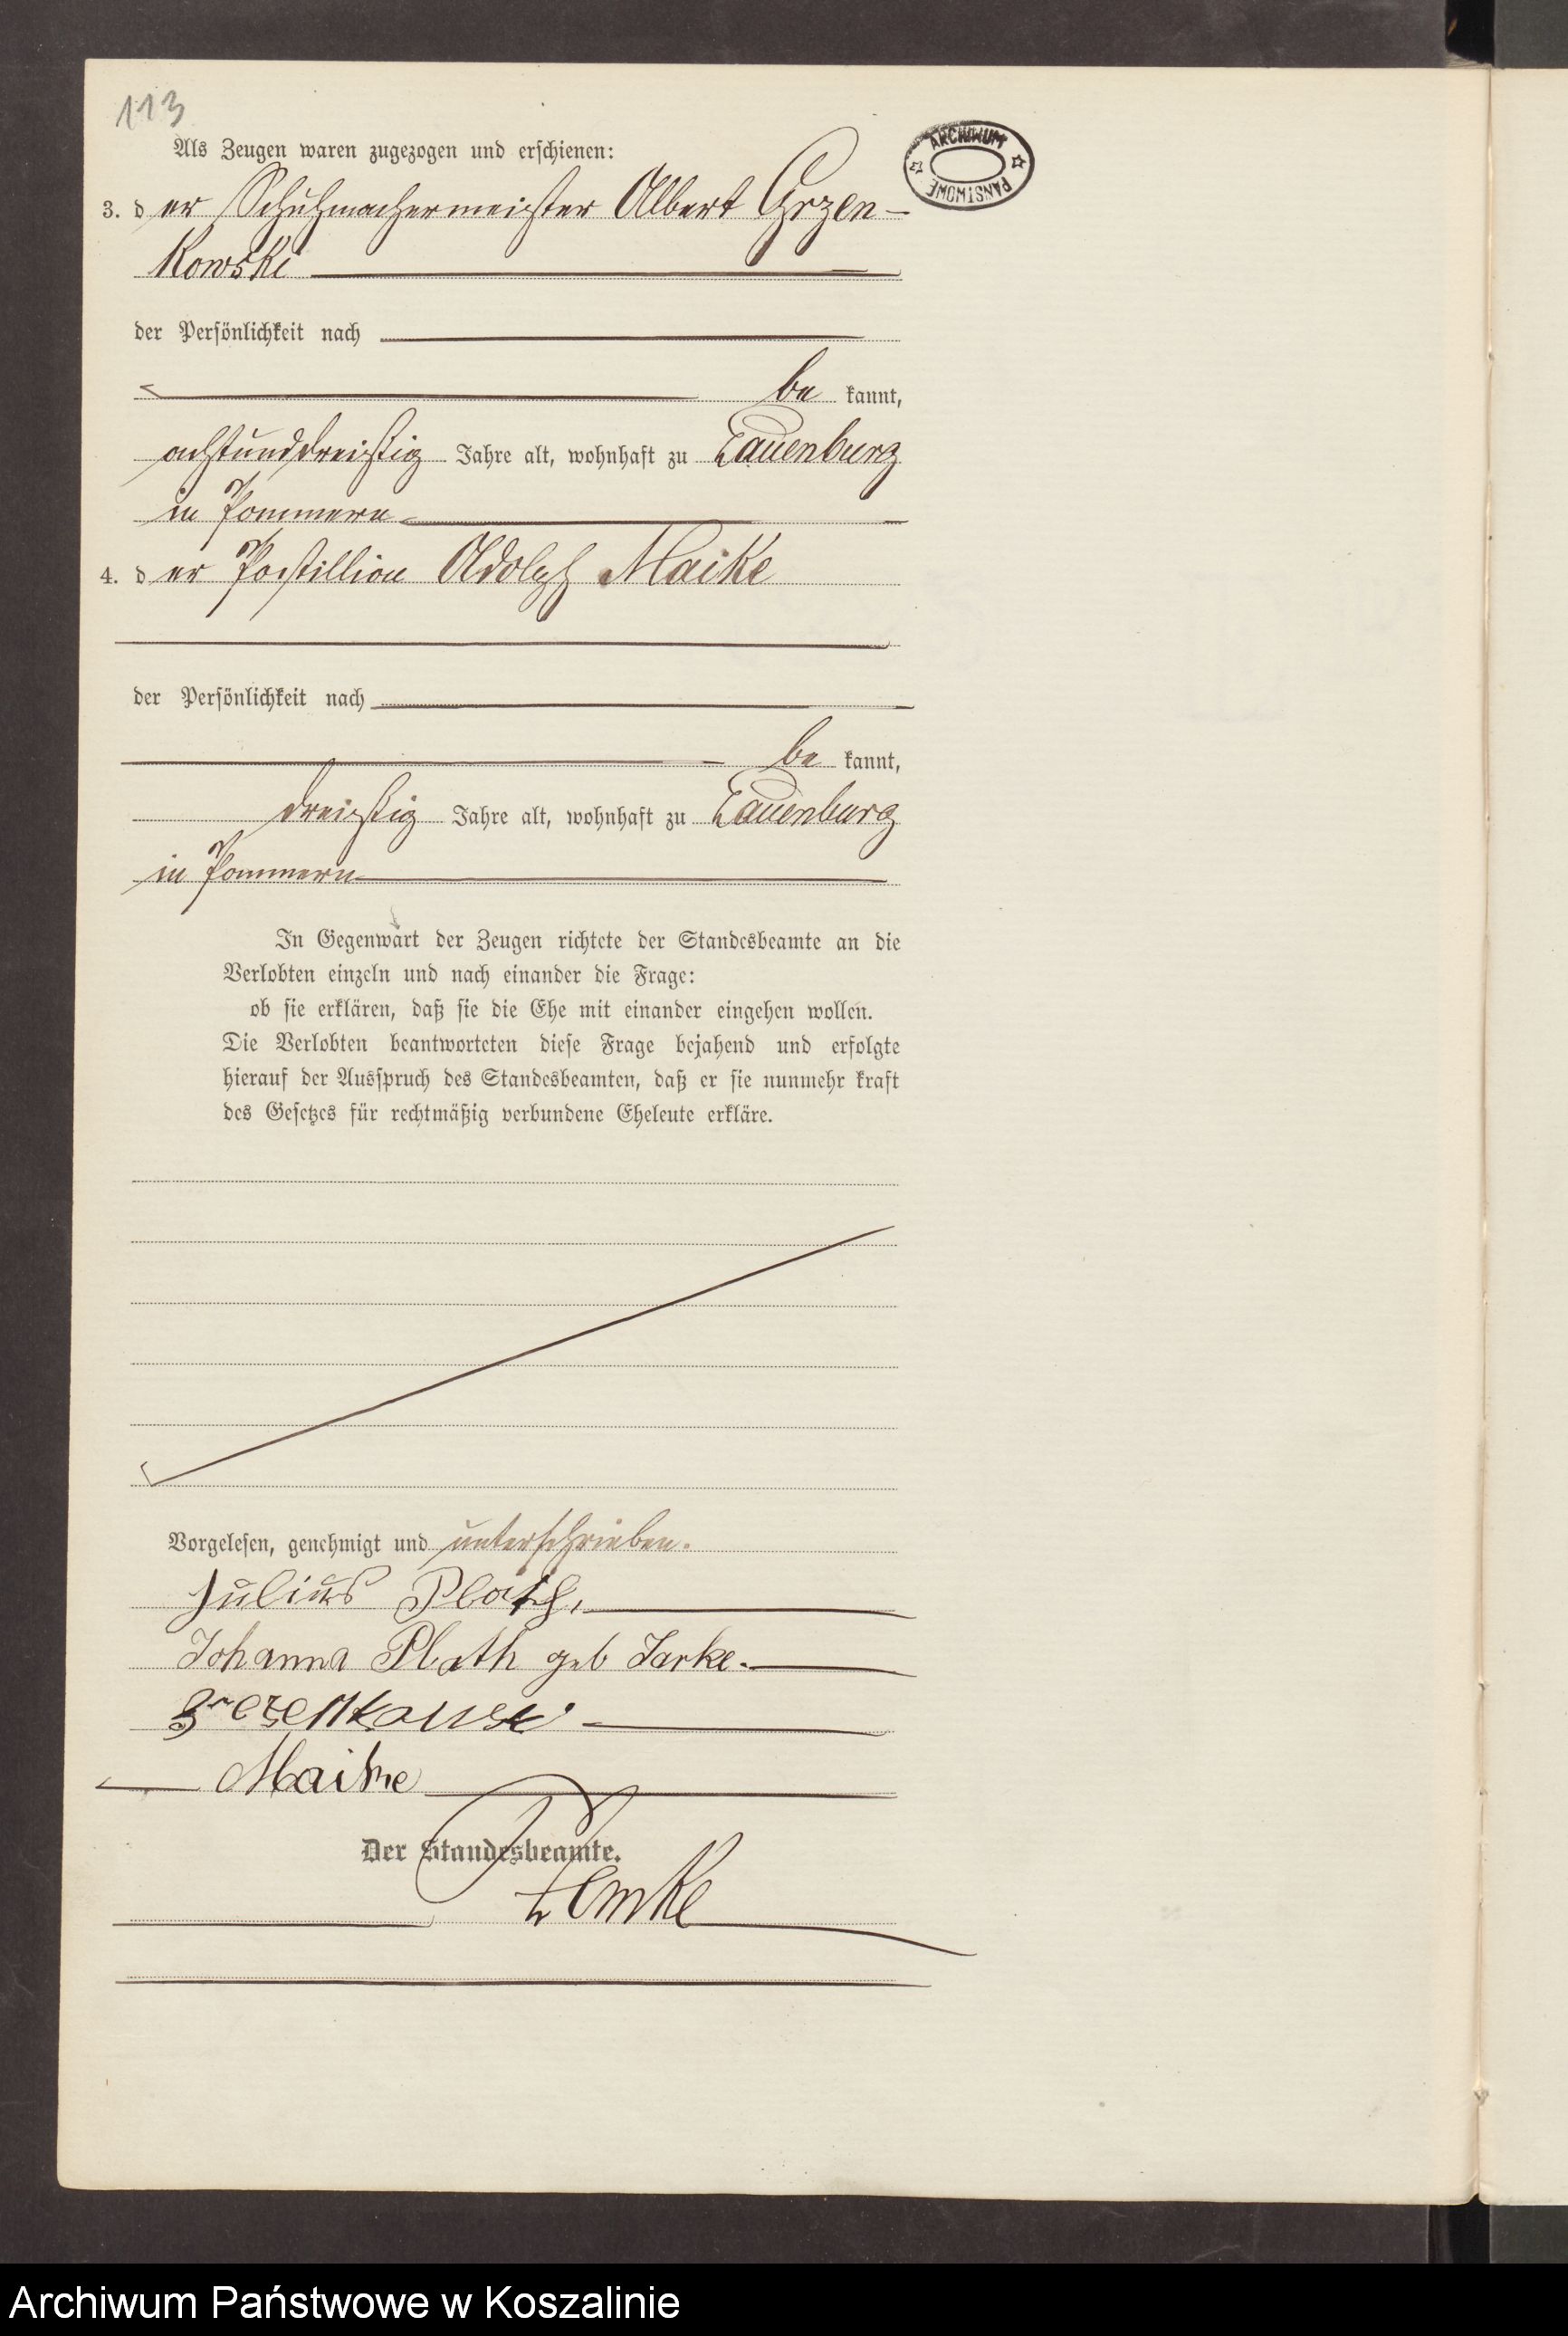 113
ARCHIWUM PAŃSTWOWE
Als Zeugen waren zugezogen und erschienen:
3. der Schuhmachermeister Albert Grzen-
kowski
der Persönlichkeit nach
be kannt,
achtunddreißig Jahre alt, wohnhaft zu Lauenburg
in Pommern
4. der Postillion Adolph Maike
der Persönlichkeit nach
be kannt,
dreißig Jahre alt, wohnhaft zu Lauenburg
in Pommern
In Gegenwart der Zeugen richtete der Standesbeamte an die
Verlobten einzeln und nach einander die Frage:
ob sie erklären, daß sie die Ehe mit einander eingehen wollen.
Die Verlobten beantworteten diese Frage bejahend und erfolgte
hierauf der Ausspruch des Standesbeamten, daß er sie nunmehr kraft
des Gesetzes für rechtmäßig verbundene Eheleute erkläre.
Vorgelesen, genehmigt und unterschrieben.
Julius Plath,
Johanna Plath geb Jarke.
Maike
Der Standesbeamte.
Lemke
Archiwum Państwowe w Koszalinie